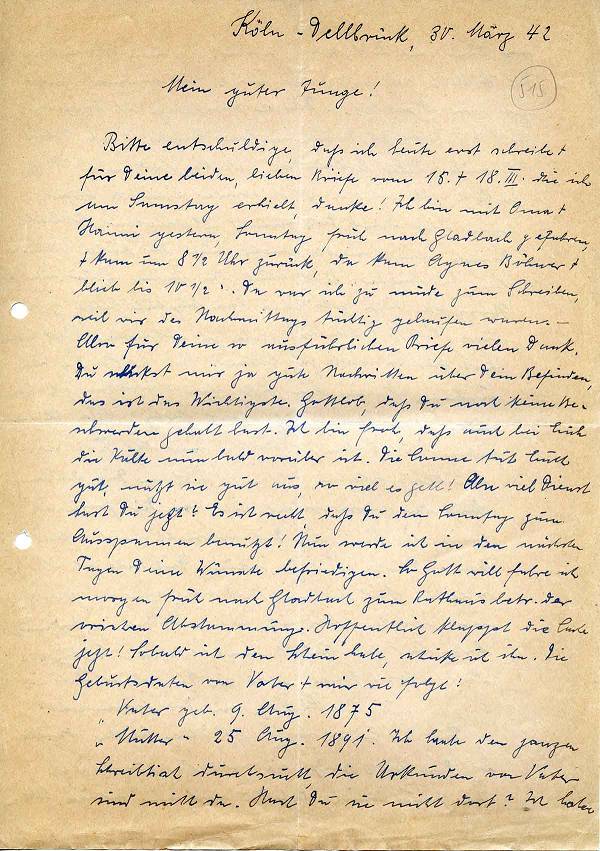 Köln-Dellbrück, 30. März 42
515
Mein guter Junge!
Bitte entschuldige, daß ich heute erst schreibe +
für Deine beiden, lieben Briefe vom 15. + 18. III. die ich
am Samstag erhielt, danke! Ich bin mit Oma +
Haimi gestern, Sonntag früh nach Gladbach gefahren,
+ kam um 8 1/2 Uhr zurück, da kam Agnes Böhmer +
blieb bis 10 1/2 ". Da war ich zu müde zum Schreiben,
weil wir des Nachmittags tüchtig gelaufen waren. –
Also für Deine so ausführlichen Briefe vielen Dank.
Du schickst mir ja gute Nachrichten über Dein Befinden,
das ist das Wichtigste. Gottlob, daß Du noch keine Be-
schwerden gehabt hast. Ich bin froh, daß auch bei Euch
die Kälte nun bald vorüber ist. Die Sonne tut Euch
gut, nutzt sie gut aus, so viel es geht! Also viel Dienst
hast Du jetzt? Es ist recht, daß Du den Sonntag zum
Ausspannen benutzt! Nun werde ich in den nächsten
Tagen Deine Wünsche befriedigen. So Gott will fahre ich
morgen früh nach Gladbach zum Rathaus betr. der
arischen Abstammung. Hoffentlich klappt die Sache
jetzt! Sobald ich den Schein habe, schicke ich ihn. Die
Geburtsdaten von Vater + mir wie folgt:
"Vater geb. 9. Aug. 1875
"Mutter " 25 Aug. 1891. Ich habe den ganzen
Schreibtisch durchsucht, die Urkunden von Vater
sind nicht da. Hast Du sie nicht dort? Ich habe